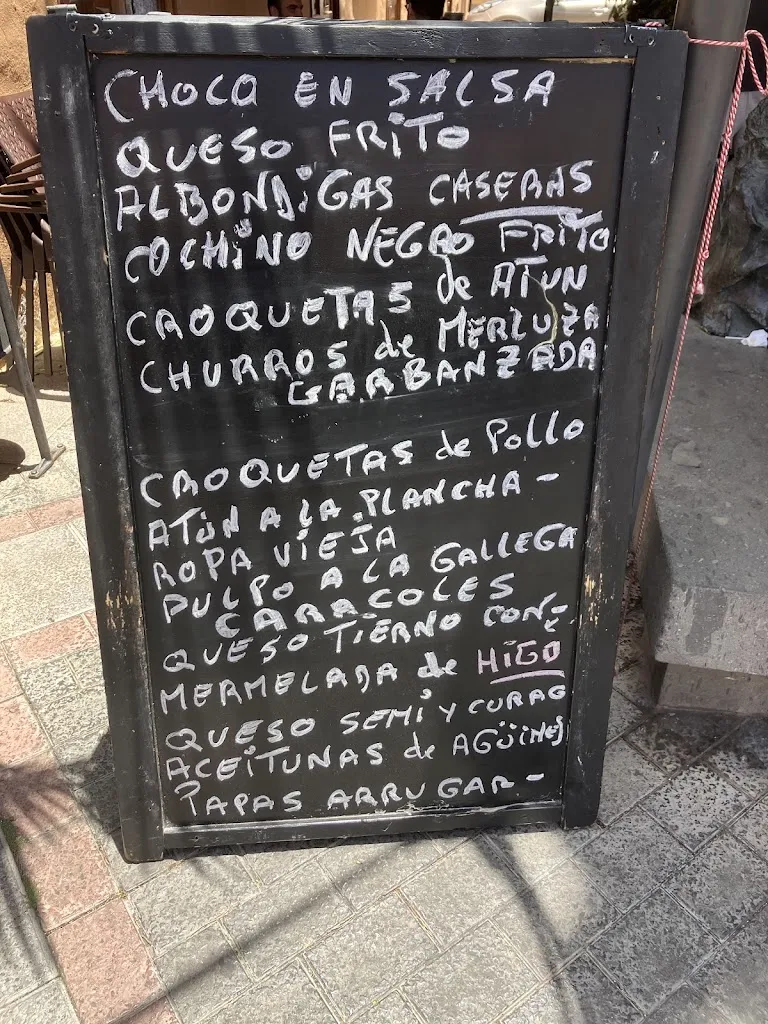 CHOCO EN SALSA
QUESO FRITO
ALBONDIGAS CASERAS
COCHINO NEGRO FRITO
CROQUETAS de ATUN
CHURROS de MERLUZA
GARBANZADA
CROQUETAS de Pollo
ATUN A LA PLANCHA -
ROPA VIEJA
PULPO A LA GALLEGA
CARACOLES
QUESO TIERNO CON-
MERMELADA de HIGO
QUESO SEMI Y CURAD
ACEITUNAS de AGÜIMES
PAPAS ARRUGAR -